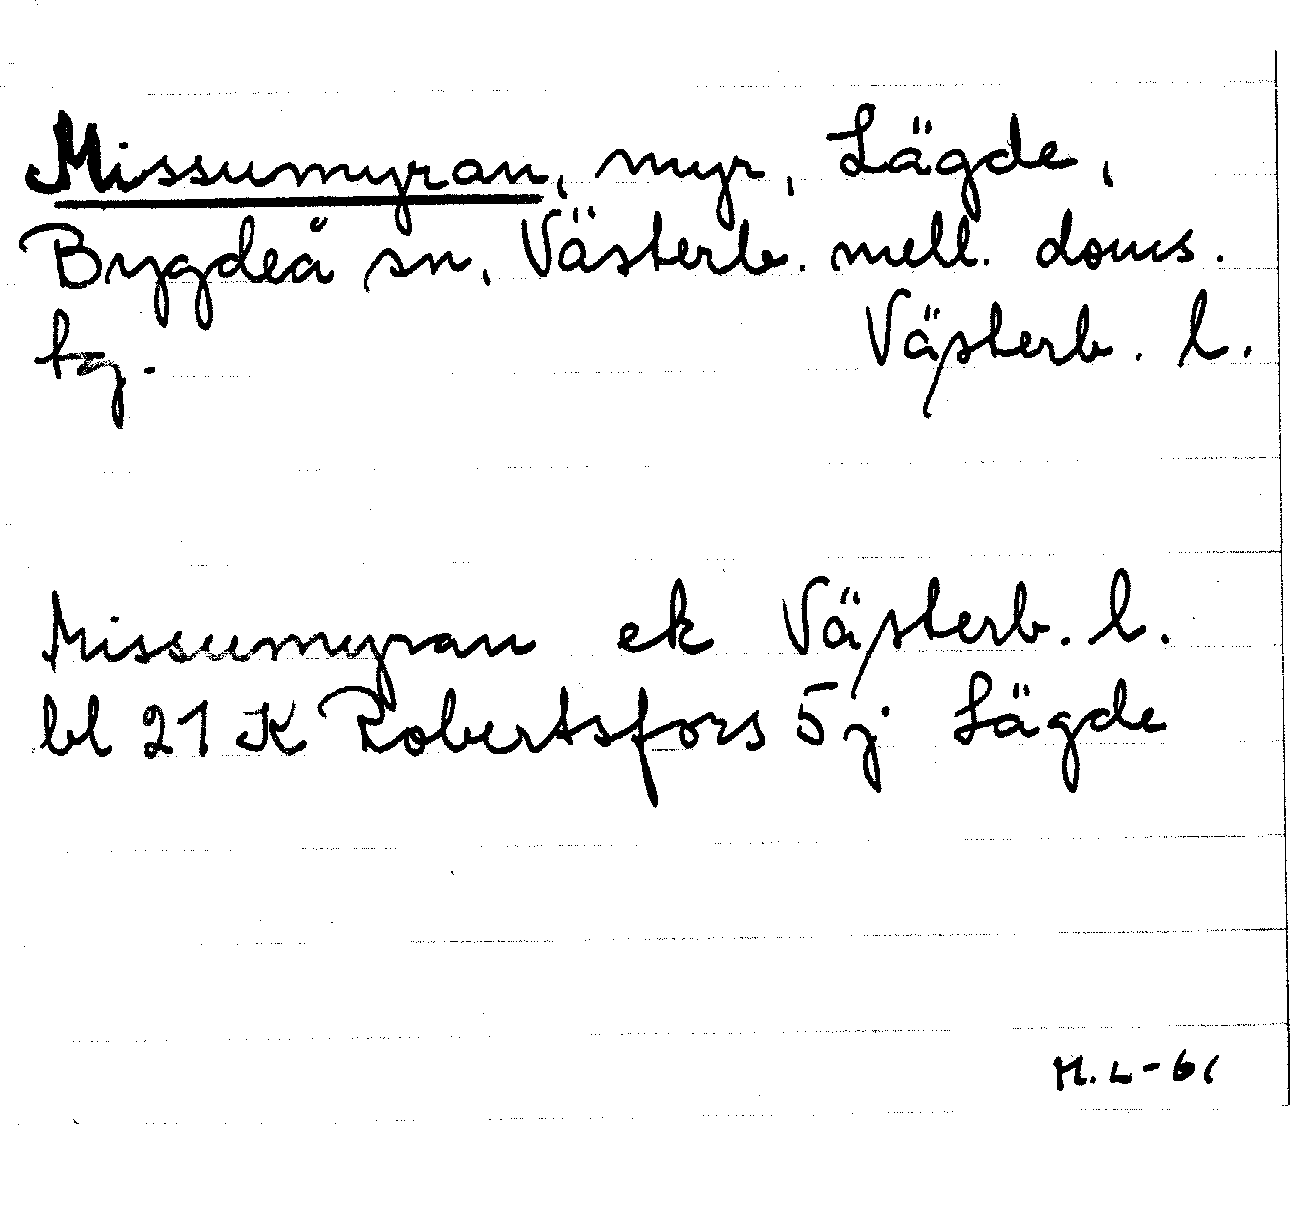 Missumyran, myr, Lägde,
Bygdeå sn, Västerb. mell. doms.
tg. Västerb. l.
Missumyran ek Västerb. l.
bl 21 K Robertsfors 5 j Lägde
M. L-61